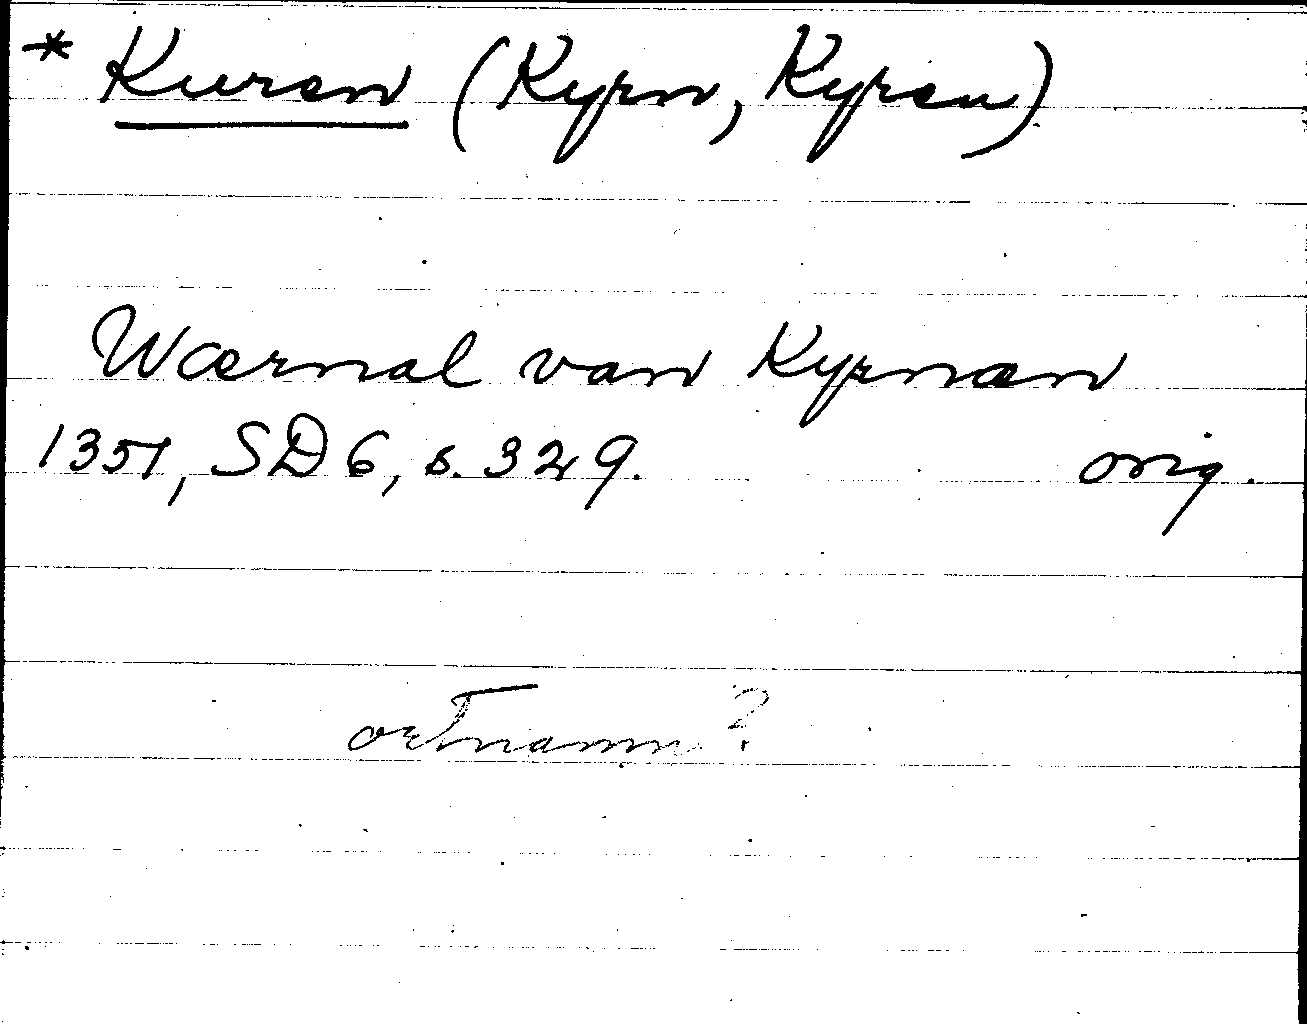 * Kuren (Kyrn, Kyren)
Wærnal van Kyrnæn
1351, SD 6, s. 329. orig.
ortnamn?